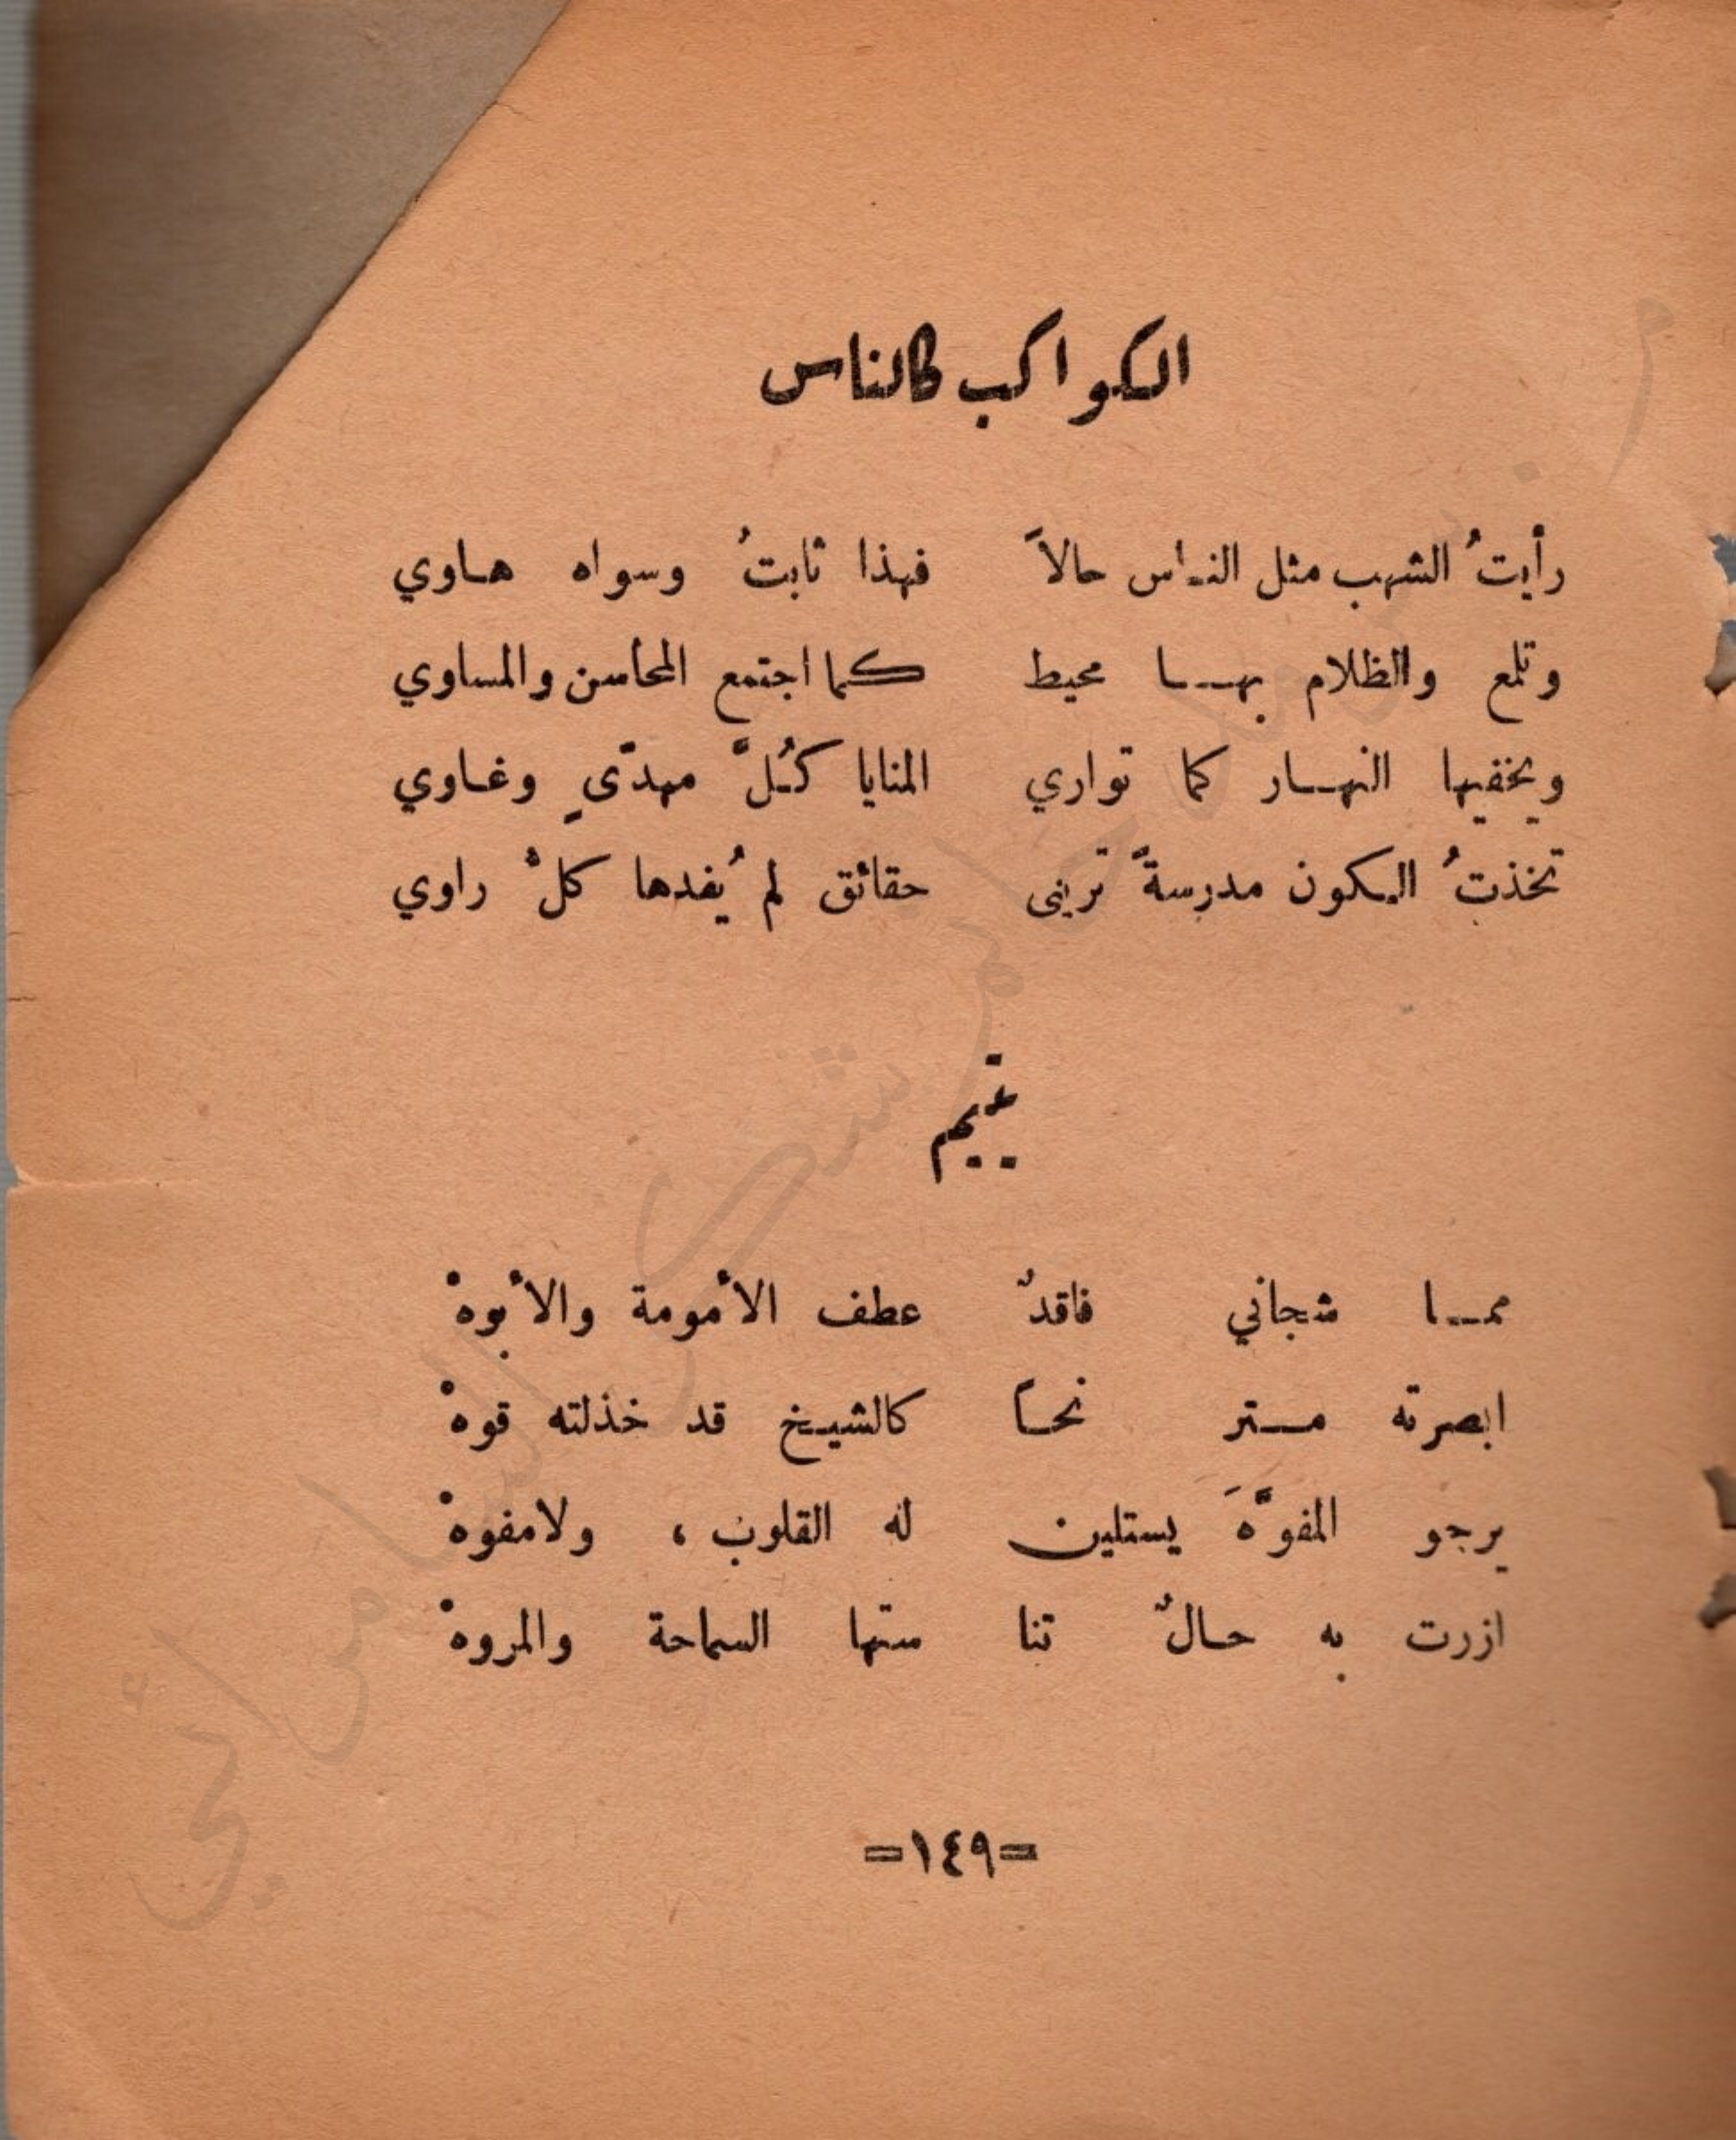 الكواكب كالناس
رأيتُ الشهب مثل الناس حالاً فهذا ثابتُ وسواه هاوي
وتلمع والظلام بها محيط كما اجتمع المحاسن والمساوي
ويخفيها النهار كما تواري المنايا كُلَّ مهدّىٍ وغاوي
تخذتُ الكون مدرسةً تريني حقائق لم يُفدها كلْ راوي
يتيم
مما شجاني فاقدٌ عطف الأمومة والأبوهْ
ابصرته مستر نحاً كالشيخ قد خذلته قوهْ
يرجو المفوَّهَ يستلين له القلوب ، ولامفوهْ
ازرت به حالٌ تنا ستها السماحة والمروهْ
=١٤٩=